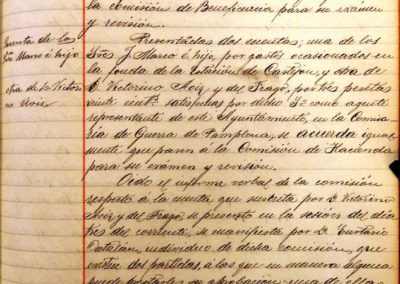 la Comisión de Beneficencia para su exámen
y revisión.
Cuenta de los
Sres Marco é hijo
otra de D. Victori-
no Noiz
Presentadas dos cuentas; una de los
Sres J. Marco é hijo, por gastos ocasionados en
la fonda de la Estación de Castejón, y otra de
D. Victorino Noiz, y del Frago, por tres pesetas
veinte cents satisfechas por dicho Sr como agente
representante de este Ayuntamiento, en la Comisa-
ría de Guerra de Pamplona, se acuerda igual-
mente que pasen á la Comisión de Hacienda
para su exámen y revisión.
Oido el informe verbal de la comisión
respecto á la cuenta que suscribe por D. Victorino
Noiz, y del Frago, se presentó en la sesión del dia
tres del corriente, se manifiesta por D. Eustasio
Catalán, individuo de dicha comisión, que
existen dos partidas, á las que en manera alguna
puede prestarse su aprobación, una de ellas